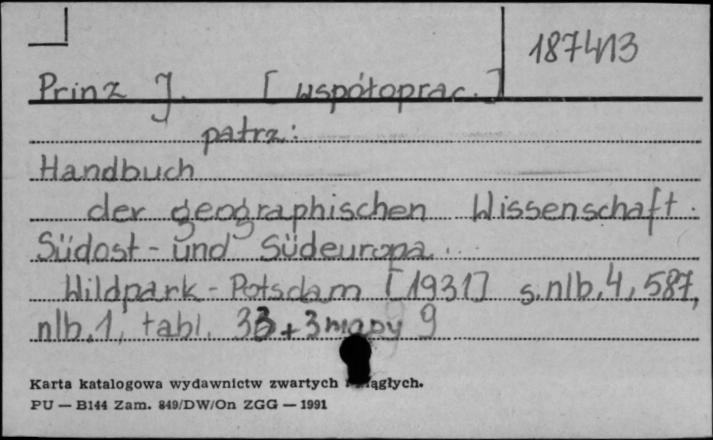 1874113
Prinz J. [współoprac.]
patrz:
Handbuch
der geographischen Wissenschaft.
Südost- und Südeuropa.
Wildpark-Potsdam [1931] s. nlb. 4, 587,
nlb. 1, tabl. 33 + 3 mapy 9
Karta katalogowa wydawnictw zwartych ciągłych.
PU — B144 Zam. 849/DW/On ZGG — 1991